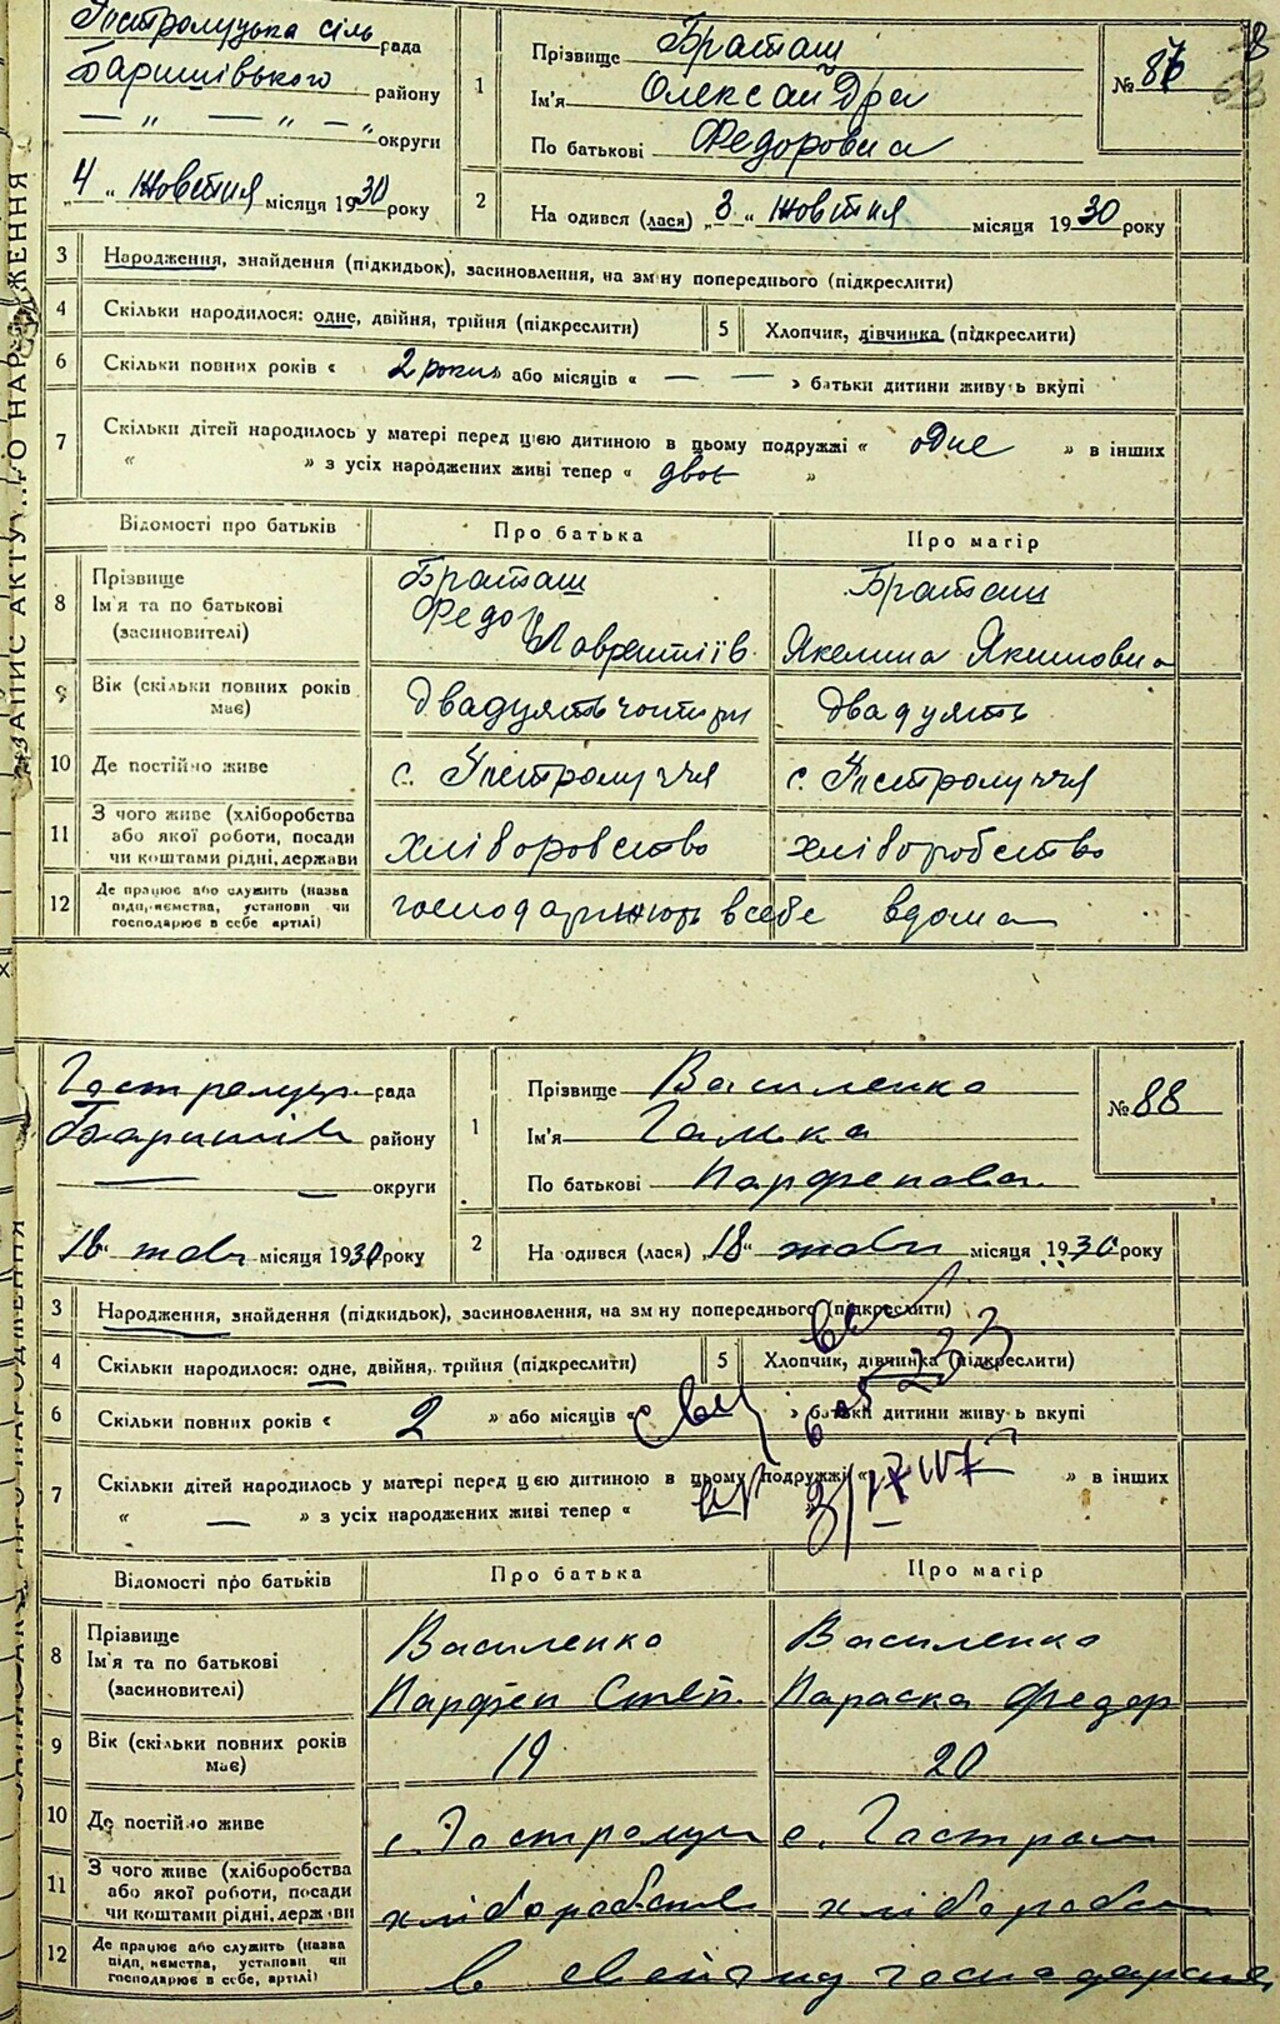 сіль рада
Баришівського району
— „ — „ — „ округи
„ 4 “ жовтня місяця 1930 року
1
Прізвище Браташ
Ім'я Олександра
По батькові Федоровна
№ 87
2
На одився (лася) „ 3 “ жовтня місяця 1930 року
ЗАПИС АКТУ ПРО НАРОДЖЕННЯ
3 Народження, знайдення (підкидьок), засиновлення, на зм ну попереднього (підкреслити)
4 Скільки народилося: одне, двійня, трійня (підкреслити) 5 Хлопчик, дівчинка (підкреслити)
6 Скільки повних років « 2 роки » або місяців « — — » батьки дитини живу ь вкупі
7 Скільки дітей народилось у матері перед цією дитиною в цьому подружжі « одне » в інших
« » з усіх народжених живі тепер « двоє »
Відомості про батьків Про батька Про матір
8 Прізвище Ім'я та по батькові (засиновителі)
Браташ Федор Лаврентіїв
Браташ Якелина Якимовна
9 Вік (скільки повних років має) двадцять чотири двадцять
10 Де постійно живе с. с.
11 З чого живе (хліборобства або якої роботи, посади чи коштами рідні, держави хліборобство хліборобство
12 Де працює або служить (назва підприємства, установи чи господарює в себе артілі) господарюють в себе вдома
рада
Баришів району
— — округи
18 “ жовт місяця 1930 року
1
Прізвище Василенко
Ім'я Галька
По батькові Парфенова
№ 88
2
На одився (лася) „ 18 “ жовтн місяця 1930 року
ЗАПИС АКТУ ПРО НАРОДЖЕННЯ
3 Народження, знайдення (підкидьок), засиновлення, на зм ну попереднього (підкреслити)
4 Скільки народилося: одне, двійня, трійня (підкреслити) 5 Хлопчик, дівчинка (підкреслити)
6 Скільки повних років « 2 » або місяців « » батьки дитини живу ь вкупі
7 Скільки дітей народилось у матері перед цією дитиною в цьому подружжі « » в інших
« — » з усіх народжених живі тепер «
Відомості про батьків Про батька Про матір
8 Прізвище Ім'я та по батькові (засиновителі)
Василенко Парфен Степ.
Василенко Параска Федор
9 Вік (скільки повних років має) 19 20
10 Де постійно живе с. с.
11 З чого живе (хліборобства або якої роботи, посади чи коштами рідні, держ ви хліборобств хлібороб
12 Де працює або служить (назва підп, ємства, установи чи господарює в себе, артілі) в